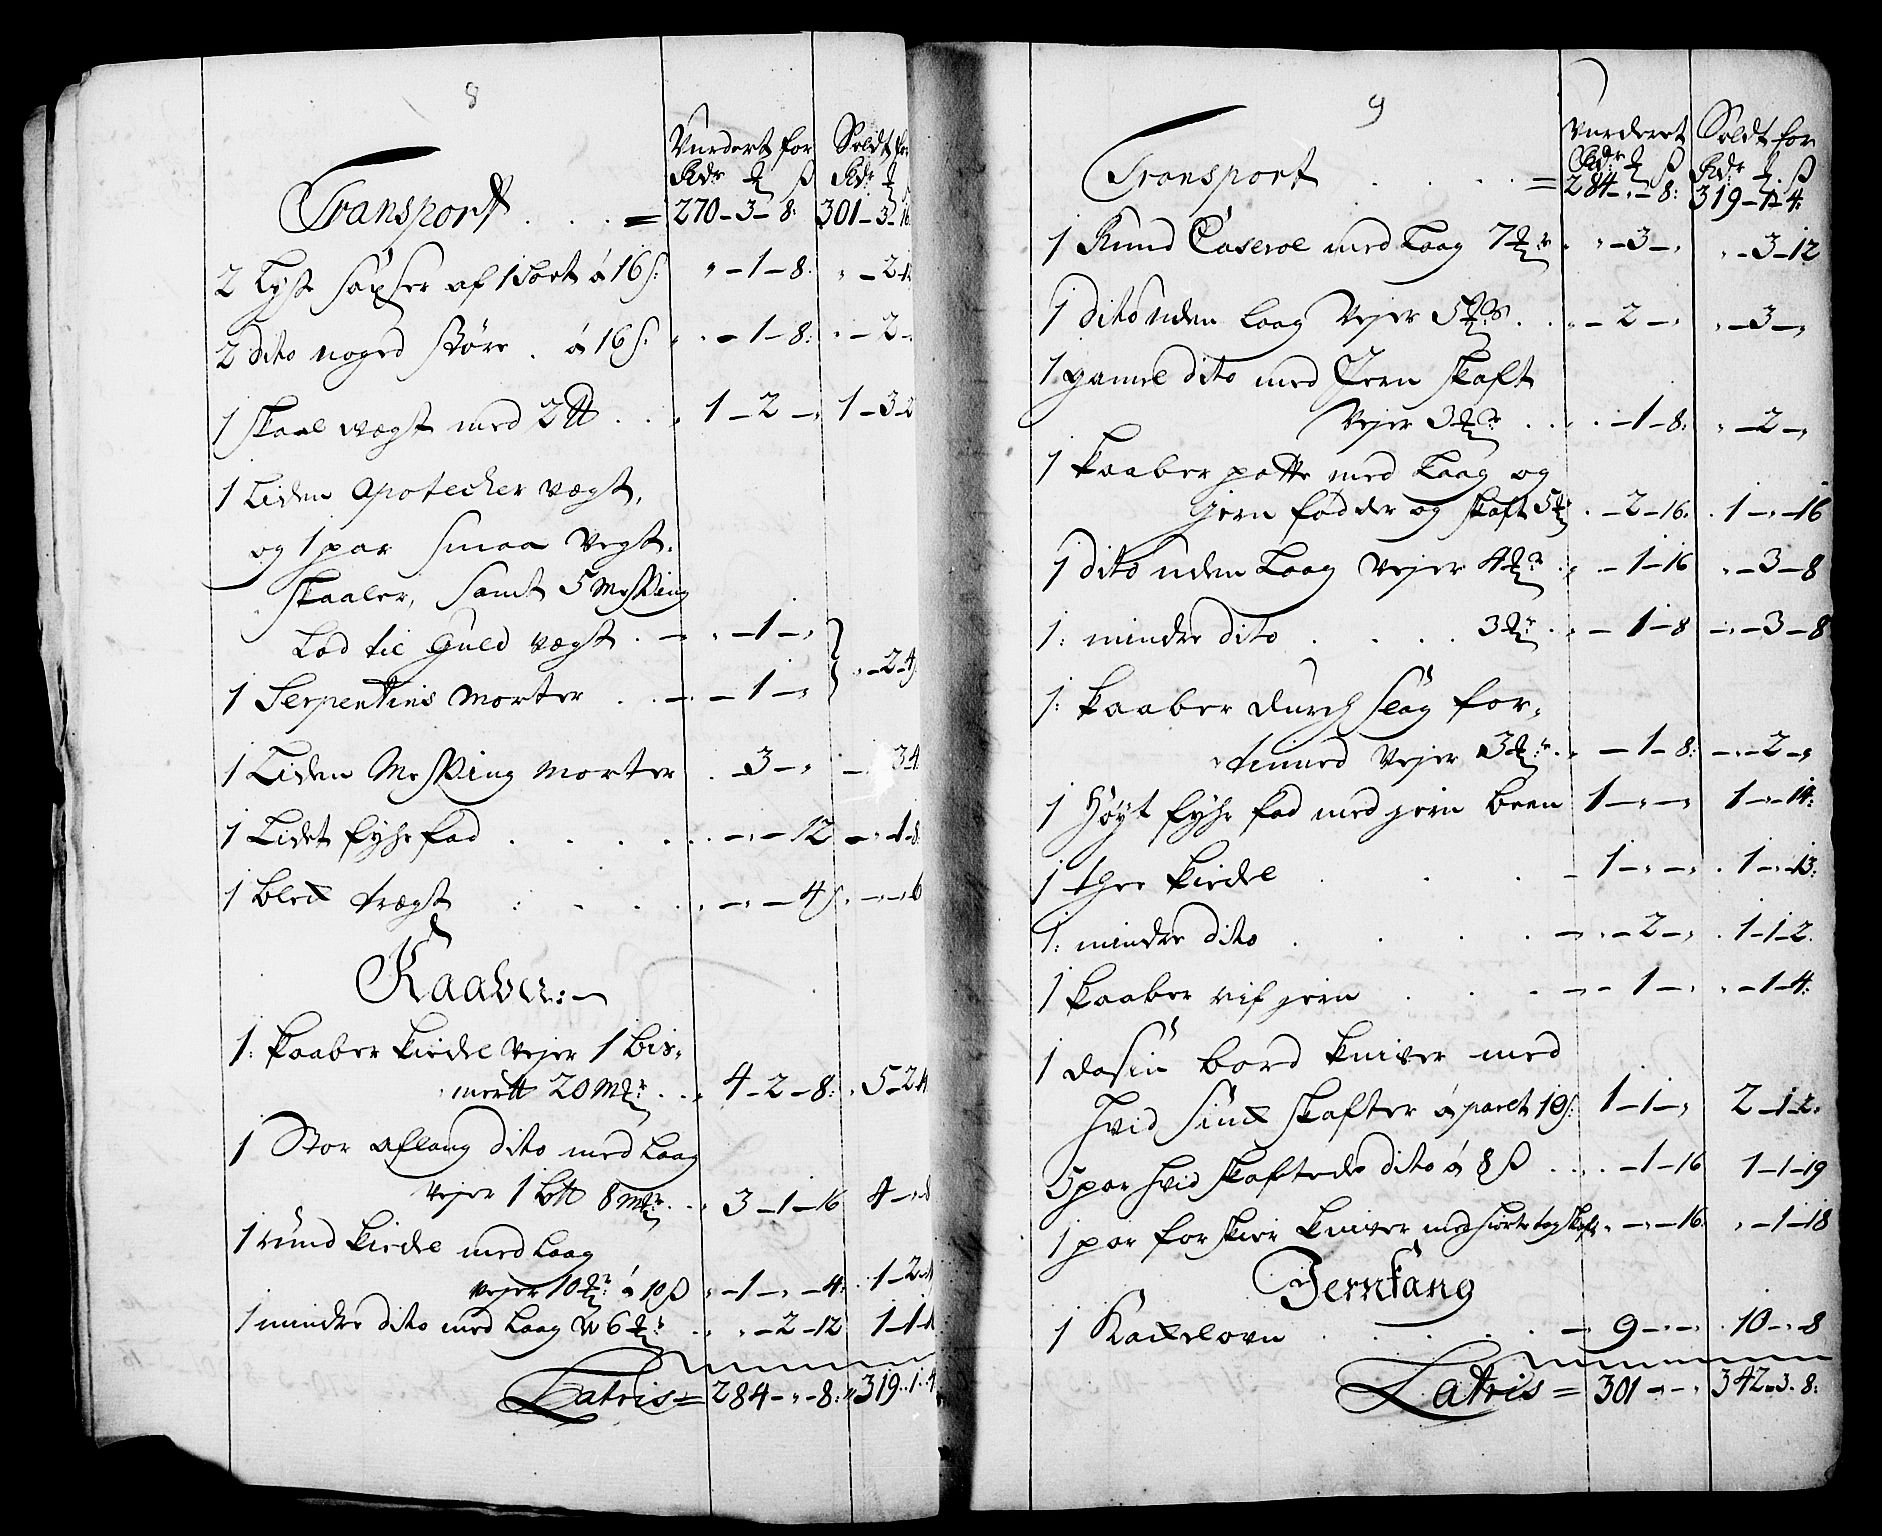 8
Vurdert for Soldt for
Rdr ß Rdr
Transport . . . = 270-3-8: 301-3-16
2 Lyse saxser af 1 Sort à 16 ß: " -1-8: " -2-12
2 dito noged större . à 16 ß: " -1-8: " -2-
1 skaal vægt med 2 ℔ . . . 1-2-" 1-3-2
1 Liden Apotecher vægt,
og 1 par smaa vegt-
skaaler, samt 5 Messing
Lod til Guld vægt . - " -1-"
1 Serpentins Morter . . - -1-" } " -2-4
1 Liden Messing Morter . -3-" - " 3 4
1 Lidet fyhrfad . . . . . -"-12 -"-1-8
1 Blik tragt : . . . -"-4 ß -"-6
Kaaber:
1: Kaaber Kiedel vejer 1 Bis-
mer℔ 20 Mkr . . 4-2-8: 5-2-4
1 Stor aflang dito med Laag
vejer 1 B℔ 8 Mkr . . 3-1-16 4-"-
1 rund Kiedel med Laag
vejer 10 à 10 ß " -1-"-4: 1-2-
1 mindre dito med Laag W 6 . . " -2-12 1-1-
Latris = 284-"-8: 319-1-4
9
Vurderet Soldt for
Rdr ß Rdr ß
Transport . . . . = 284-"-8: 319-1-4:
1 Rund Caserol med Laag 7 . " -3-" " -3-12
1 dito uden Laag Vejer 5 . . " -2-" " -3-"
1 gamel dito med Jern skaft
Vejer 3 . . . -1-8: " -2-"
1 Kaaber potte med Laag og
Jern fødder og skaft 5 . -2-16: . 1-"-16
1 dito uden Laag vejer 4 . . -1-16 " -3-8
1: mindre dito . . . . 3 . . -1-8 -"-3-8
1: Kaaber Durchslag for-
tinned Vejer 3 . . -1-8: -"-2-"
1 Høyt fyhr fad med jern Been 1-"-" 1-"-14:
1 thee Kiedel . . . - 1-"-" . 1-"-13:
1: mindre dito . . . . - " -2-" . 1-1-2.
1 Kaaber rif jern . . . - - 1-" " -1-4:
1 dosin bord Kniver med
Hvid Sink skafter à paret 18 ß: 1-1-" 2-1-2"
5 par Hvid skaftede dito à 8 ß . . . -1-16 1-1-19
1 par forskier Kniver med hiorte tag skaft " -"-16 " -1-18
Jernfang
1 Kakelovn . . . . - 9-"-" . 10-"-8
Latris = 301-"-" 342-3-8: